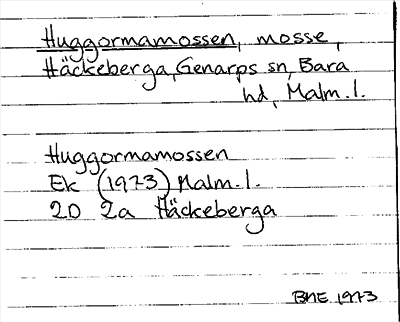 Huggormamossen, mosse,
Häckeberga, Genarps sn, Bara
hd, Malm.l.
Huggormamossen
Ek (1973) Malm.l.
2D 2a Häckeberga
BNE 1973